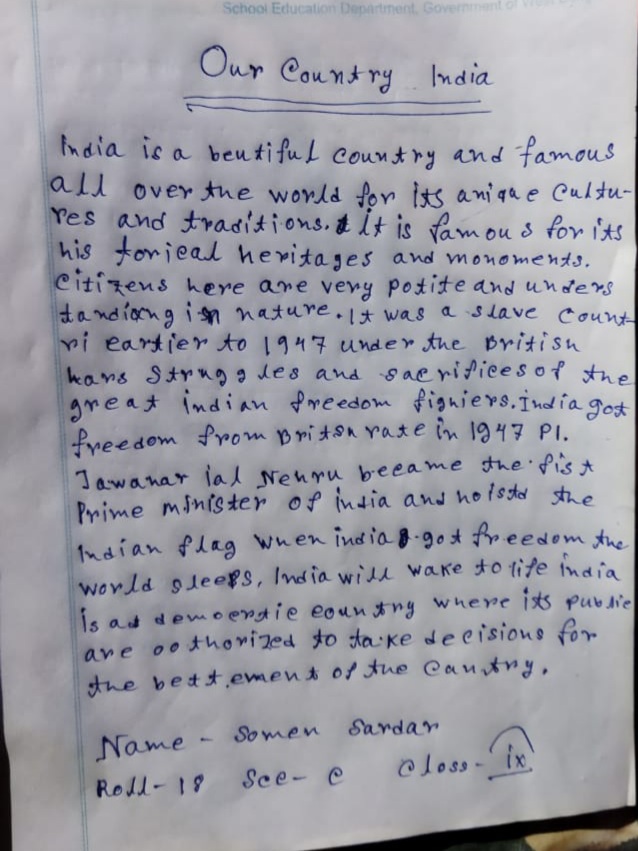 School Education Department, Government of West
Our Country India
India is a beutiful country and famous
all over the world for its aniqae Cultu-
res and traditions. It is famous for its
his torical heritages and monoments.
Citizens here are very potite and unders
tandiang in nature. It was a slave Count-
ri eartier to 1947 under the British
hars Struggles and sacrifices of the
great indian freedom figniers. India got
freedom from Britsn rate in 1947 Pl.
Jawahar ial Nehru became the fist
Prime minister of india and hoistd the
Indian flag when india got freedom the
world sleeps, India will wake to life india
is ad democratic country where its public
are oothorized to take decisions for
the bettement of the Cauntry.
Name - Somen Sardar
Roll- 18 Sce- C Closs- ix